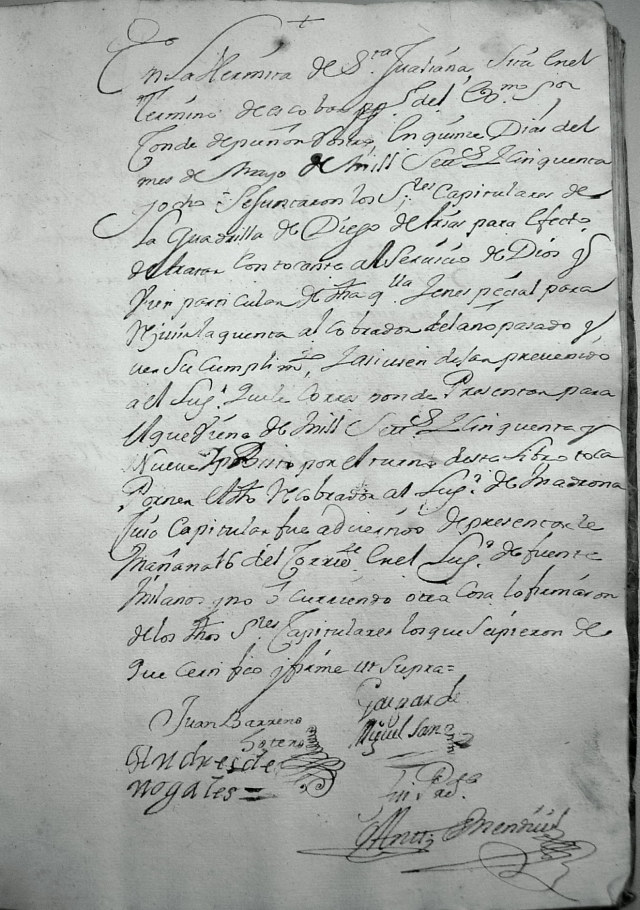 En la Hermita de Sta. Juliana, sita en el
termino de escobar ppº del Exmo Sior
Conde de puñon Rostro, En quince Dias del
mes de Mayo de mill Setts. Zinquenta
y ocho = se juntaron los Sres Capitulares de
La Quadrilla de Diego de Arias para Efecto
de tratar lo tocante al Servicio de Dios y
vien particular de dha qlla y en especial para
la quenta al Cobrador del año pasado y
ver su Cumplimto, y asi bien dejar prevenido
a el Lugr. que le Corresponde Presentar para
el que viene de mill Setts. Zinquenta y
Nueve y visto por el turno deste Libro toca
Poner el dho Cobrador al Lugr. de Madrona
Cuio Capitular fue advertido de presentarle
Mañana 16 del Corrte. en el Lugr. de fuente
milanos y no ocurriendo otra Cosa lo firmaron
de los dhos Sres Capitulares los que Supieron de
que Certifico y firme ut Supra =
Juan Barreno Gaspar de
Sotero Miguel Sanz
Andres de
nogales =
Fui Preste
Antto Mendez